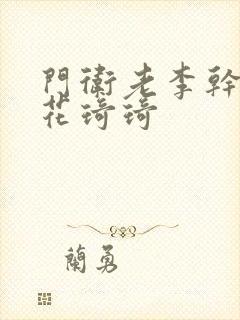 門衛老李幹
花琦琦
蘭勇